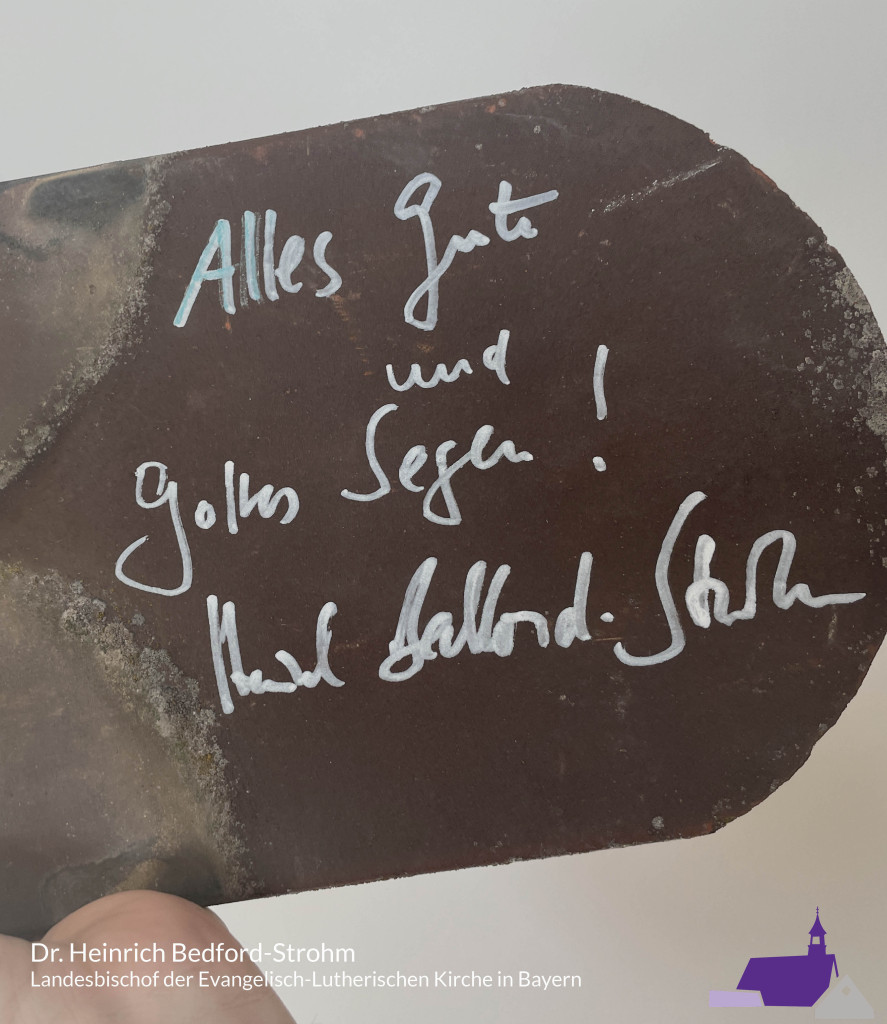 Alles Gute
und
Gottes Segen!
Heinrich Bedford-Strohm
Dr. Heinrich Bedford-Strohm
Landesbischof der Evangelisch-Lutherischen Kirche in Bayern